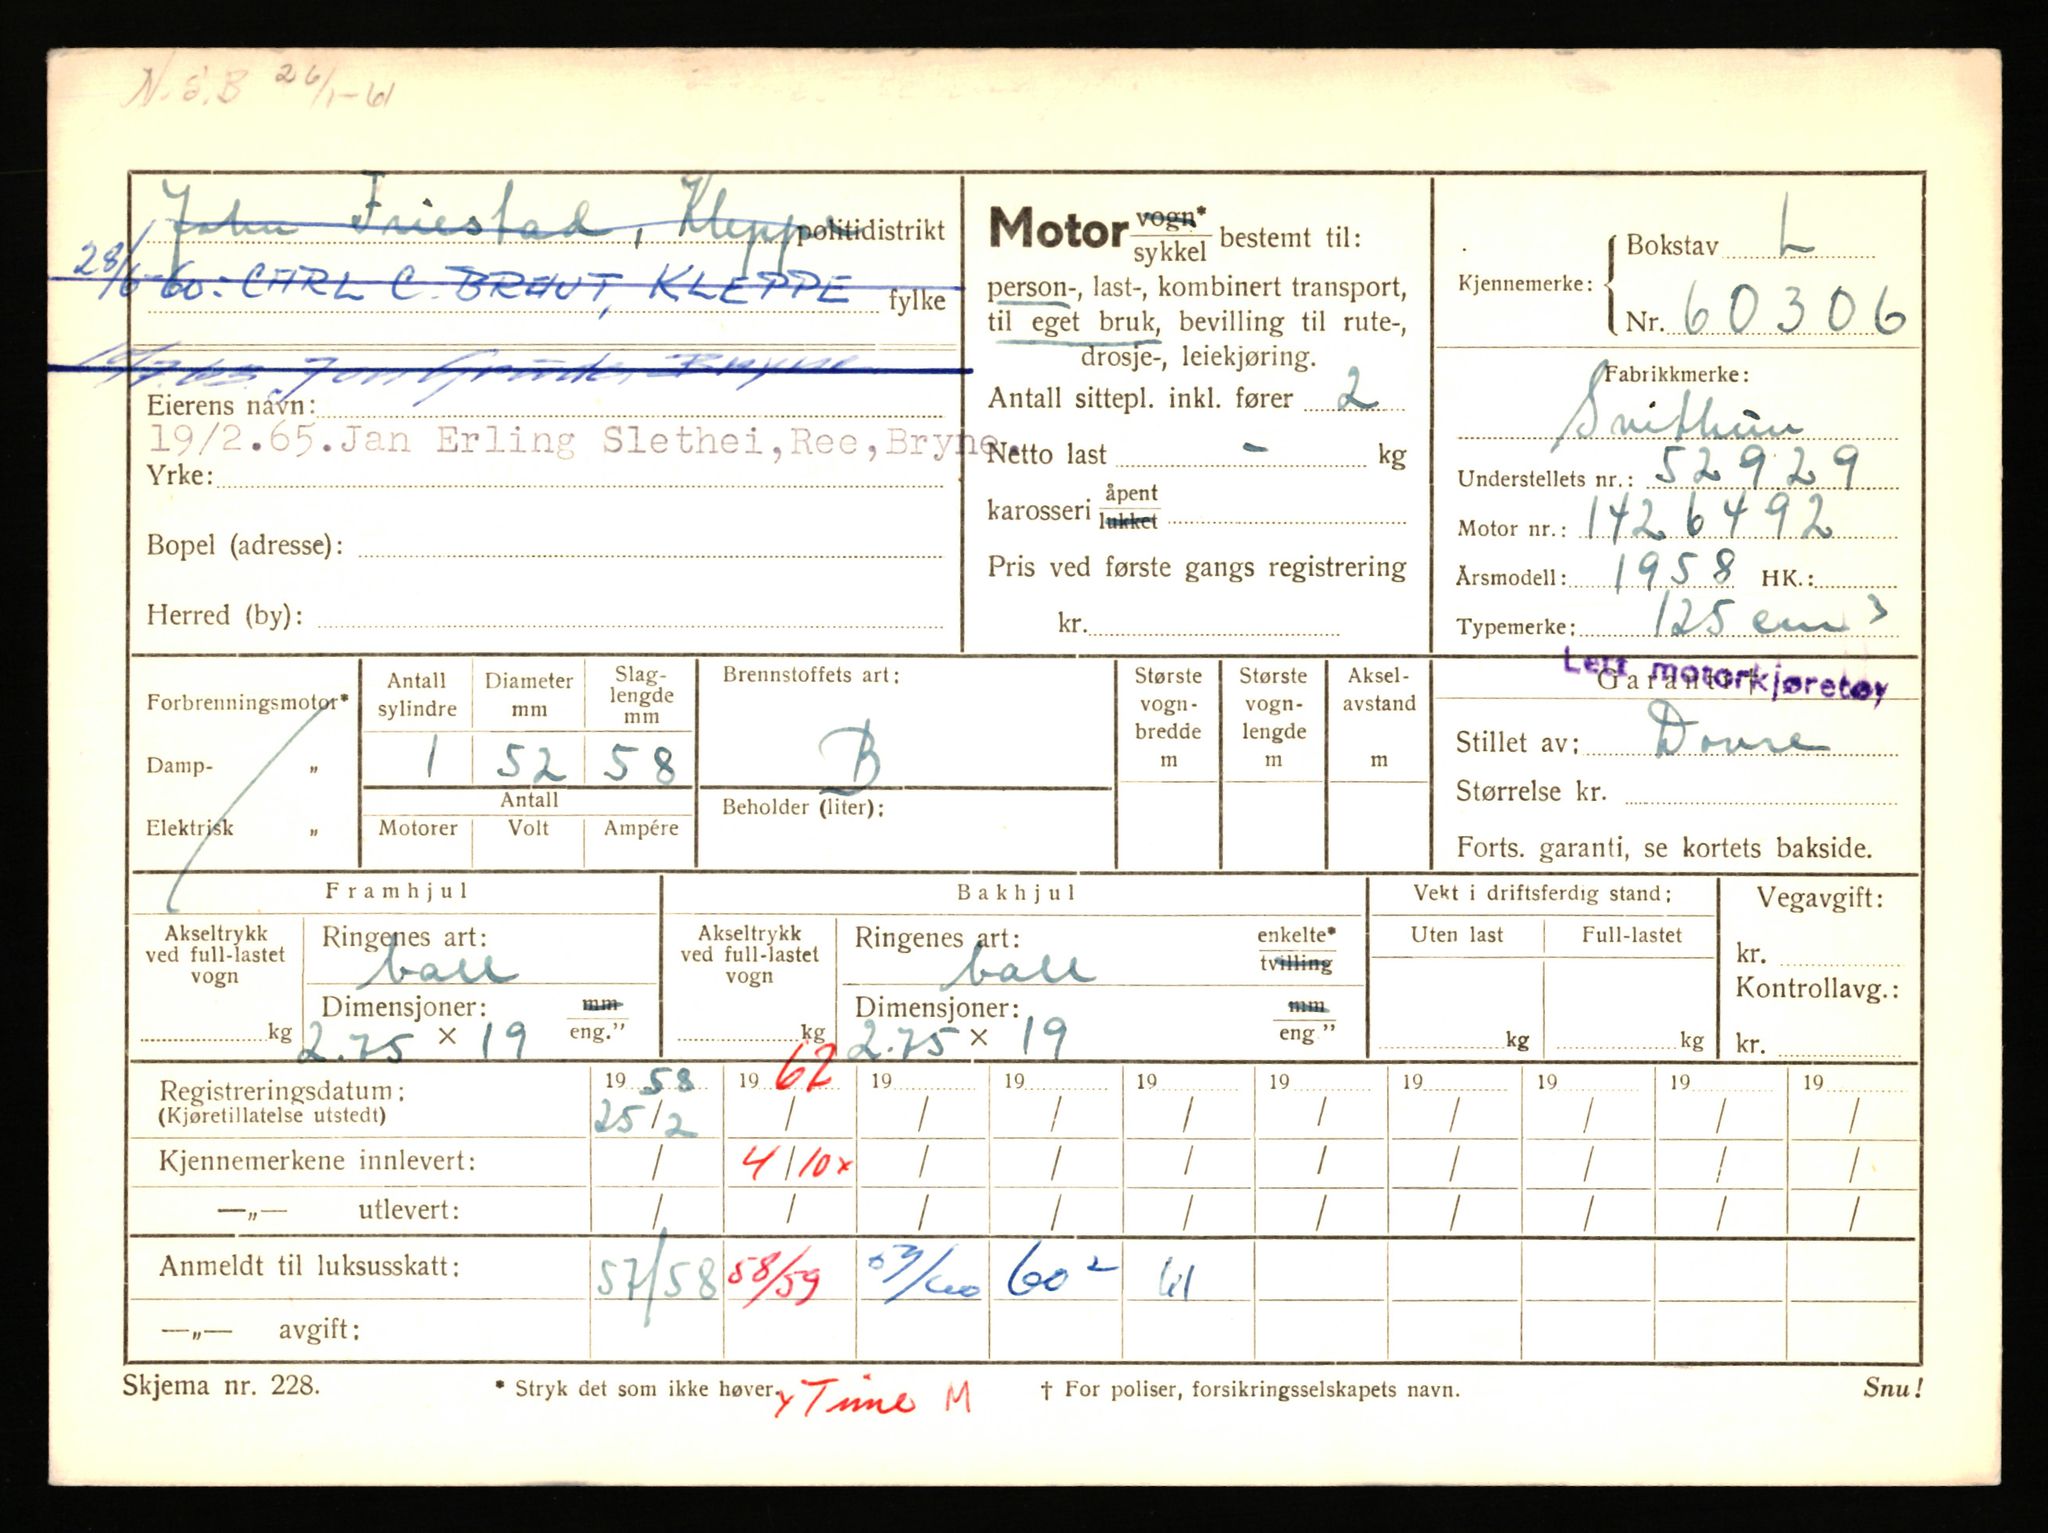 N.S.B 26/1-61
John Friestad, Kleppe politidistrikt
28/6-60: CARL C. BRAUT, KLEPPE fylke
Bryne
Eierens navn:
19/2.65.Jan Erling Slethei,Ree,Bryne.
Yrke:
Bopel (adresse):
Herred (by):
Motor vogn* / sykkel bestemt til:
person-, last-, kombinert transport,
til eget bruk, bevilling til rute-,
drosje-, leiekjøring.
Antall sittepl. inkl. fører 2
Netto last - kg
karosseri åpent / lukket
Pris ved første gangs registrering
kr.
Kjennemerke: Bokstav L
Nr. 60306
Fabrikkmerke:
Svithun
Understellets nr.: 52929
Motor nr.: 1426492
Årsmodell: 1958 HK.:
Typemerke: 125 cm3
Lett motorkjøretøy
Forbrenningsmotor*
Damp- „
Elektrisk „
Antall sylindre 1
Diameter mm 52
Slag- lengde mm 58
Antall
Motorer Volt Ampére
Brennstoffets art:
B
Beholder (liter):
Største vogn- bredde m
Største vogn- lengde m
Aksel- avstand m
Garanti†
Stillet av: Dovre
Størrelse kr.
Forts. garanti, se kortets bakside.
Framhjul
Akseltrykk ved full-lastet vogn kg
Ringenes art:
ball
Dimensjoner: mm / eng."
2.75 × 19
Bakhjul
Akseltrykk ved full-lastet vogn kg
Ringenes art: enkelte* / tvilling
ball
Dimensjoner: mm / eng"
2.75 × 19
Vekt i driftsferdig stand:
Uten last Full-lastet
kg kg
Vegavgift:
kr.
Kontrollavg.:
kr.
Registreringsdatum: 19 58 19 62 19 19 19 19 19 19 19 19
(Kjøretillatelse utstedt) 25/2 / / / / / / / / /
Kjennemerkene innlevert: / 4/10x / / / / / / / /
—„— utlevert: / / / / / / / / / /
Anmeldt til luksusskatt: 57/58 58/59 59/60 60² 61
—„— avgift:
Skjema nr. 228. * Stryk det som ikke høver. x Time M † For poliser, forsikringsselskapets navn. Snu!